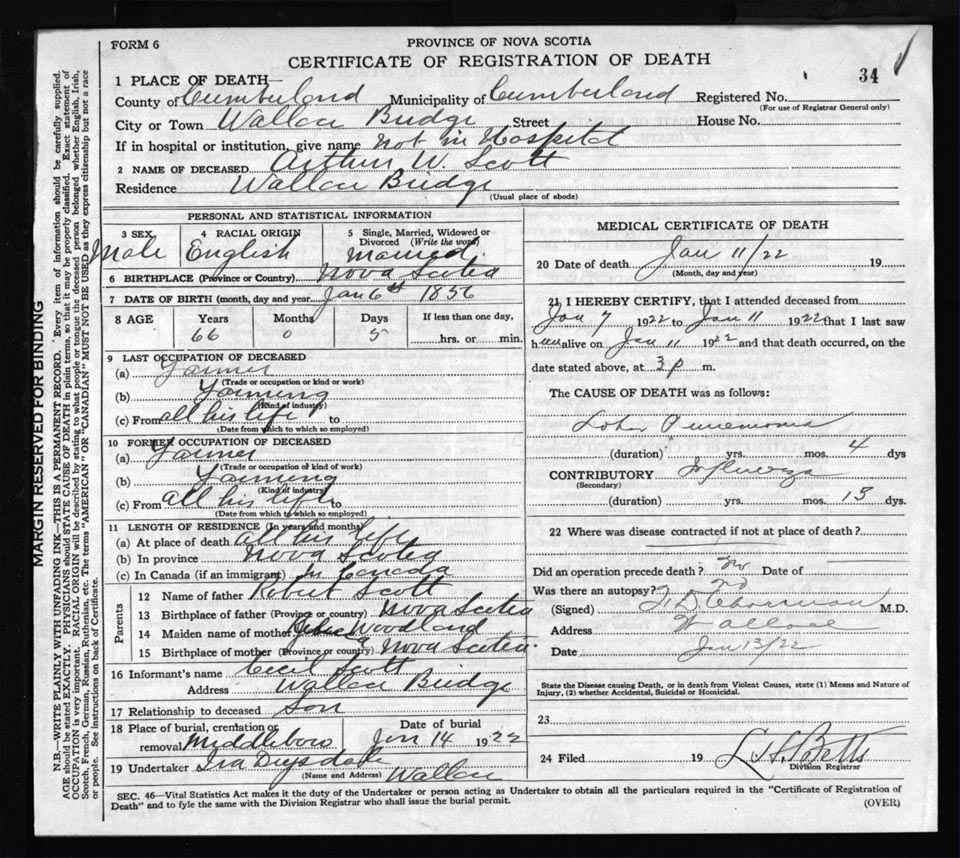 FORM 6
PROVINCE OF NOVA SCOTIA
CERTIFICATE OF REGISTRATION OF DEATH
34
1 PLACE OF DEATH—
County of Cumberland Municipality of Cumberland Registered No.
(For use of Registrar General only)
City or Town Wallace Bridge Street House No.
If in hospital or institution, give name Not in Hospital
2 NAME OF DECEASED Arthur W. Scott
Residence Wallace Bridge
(Usual place of abode)
MARGIN RESERVED FOR BINDING
N.B.—WRITE PLAINLY WITH UNFADING INK—THIS IS A PERMANENT RECORD. Every item of information should be carefully supplied.
AGE should be stated EXACTLY. PHYSICIANS should STATE CAUSE OF DEATH in plain terms, so that it may be properly classified. Exact statement of
OCCUPATION is very important. RACIAL ORIGIN will be described by stating to what people or tongue the deceased person belonged whether English, Irish,
Scotch, French, German, Russian, Ruthenian, etc. The terms "AMERICAN" OR "CANADIAN" MUST NOT BE USED as they express citizenship but not a race
or people. See instructions on back of Certificate.
PERSONAL AND STATISTICAL INFORMATION
3 SEX 4 RACIAL ORIGIN 5 Single, Married, Widowed or
Divorced (Write the word)
Male English Married
6 BIRTHPLACE (Province or Country) Nova Scotia
7 DATE OF BIRTH (month, day and year) Jan 6th 1856
8 AGE Years Months Days If less than one day,
66 0 5 hrs. or min.
9 LAST OCCUPATION OF DECEASED
(a) Farmer
(Trade or occupation or kind or work)
(b) Farming
(Kind of industry)
(c) From all his life to
(Date from which to which so employed)
10 FORMER OCCUPATION OF DECEASED
(a) Farmer
(Trade or occupation or kind of work)
(b) Farming
(Kind of industry)
(c) From all his life to
(Date from which to which so employed)
11 LENGTH OF RESIDENCE (In years and months)
(a) At place of death all his life
(b) In province Nova Scotia
(c) In Canada (if an immigrant) in Canada
Parents
12 Name of father Robert Scott
13 Birthplace of father (Province or country) Nova Scotia
14 Maiden name of mother Woodland
15 Birthplace of mother (Province or country) Nova Scotia
16 Informant's name Cecil Scott
Address Wallace Bridge
17 Relationship to deceased Son
18 Place of burial, cremation or Date of burial
removal Middleboro Jan 14 1922
19 Undertaker Ira Drysdale
(Name and Address) Wallace
MEDICAL CERTIFICATE OF DEATH
20 Date of death Jan 11/22 19
(Month, day and year)
21 I HEREBY CERTIFY, that I attended deceased from
Jan 7 1922 to Jan 11 1922 that I last saw
him alive on Jan 11 1922 and that death occurred, on the
date stated above, at 3 p m.
The CAUSE OF DEATH was as follows:
Lobar Pneumonia
(duration) yrs. mos. 4 dys
CONTRIBUTORY Influenza
(Secondary)
(duration) yrs. mos. 13 dys.
22 Where was disease contracted if not at place of death?
Did an operation precede death? no Date of
Was there an autopsy? no
(Signed) M.D.
Address Wallace
Date Jan 13/22
State the Disease causing Death, or in death from Violent Causes, state (1) Means and Nature of
Injury, (2) whether Accidental, Suicidal or Homicidal.
23
24 Filed 19 Betts
Division Registrar
SEC. 46—Vital Statistics Act makes it the duty of the Undertaker or person acting as Undertaker to obtain all the particulars required in the "Certificate of Registration of
Death" and to fyle the same with the Division Registrar who shall issue the burial permit.
(OVER)